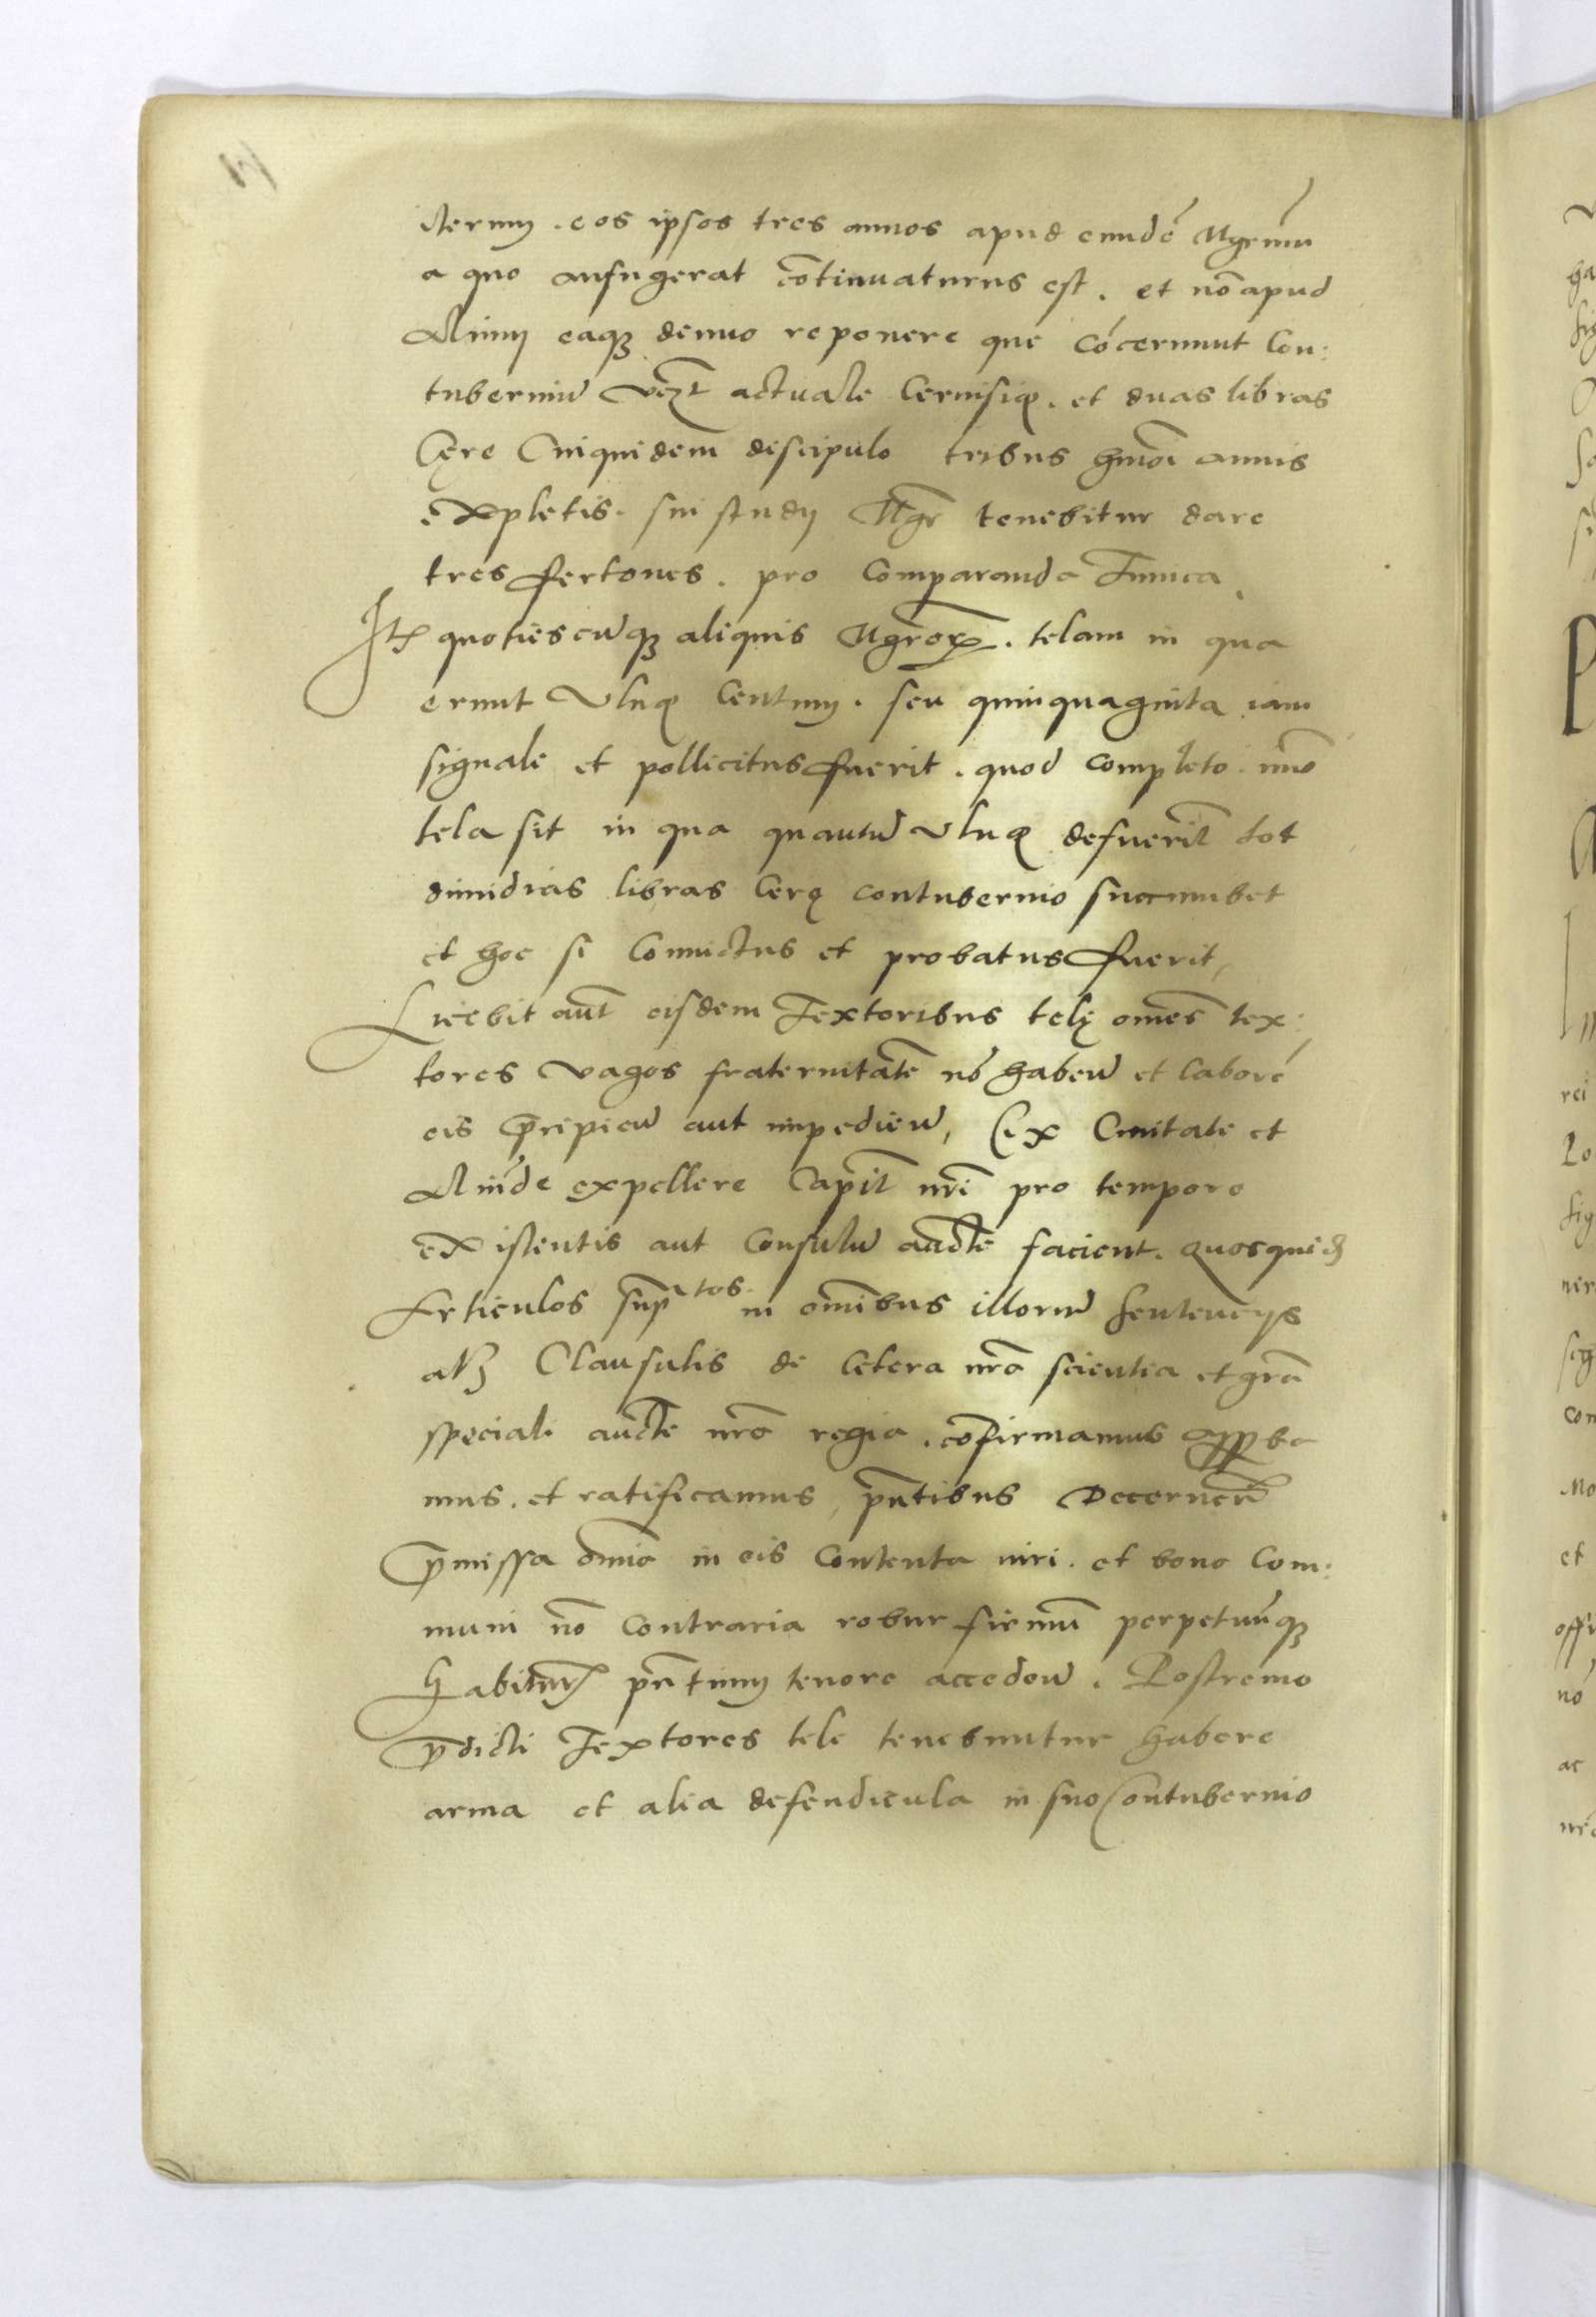 iterum . eos ipsos tres annos apud eundē Mgrum̄
a quo aufugerat cōtinuaturus est . et nō apud
Alium eaqȝ denuo reponere que cōcernunt Con:
tuberniū vcȝt actuale Cervisię . et duas libras
Cere Cuiquidem discipulo tribus hmōi annis
expletis . sui studij Mgr̄ tenebitur dare
tres fertones . pro comparanda Tunica .
Itē quotiescūqȝ aliquis Mgrōrꝝ . telam in qua
erunt Vlnę Centum . seu quinquaginta iam
signale et pollicitus fuerit . quod completo
tela sit in qua quantū Vlnę defuerīt tot
dimidias libras Cerę contubernio succumbet
et hoc si Convictus et probatus fuerit ,
Licebit aūt eisdem Textoribus telę om̄es tex:
tores vagos fraternitatē nō habeñ et laborē
eis p̄ripieñ aut impedieñ , Ex Civitate et
Aliūde expellere Capīt nr̄i pro tempore
existentis aut Consulū auctē facient . Quosquid
Articulos sup̄ tos in om̄ibus illorū sentencijs
atȝ Clausulis de Cetera nrā scientia et grā
speciali auctē nrā regia . cōfirmamus approba
mus . et ratificamus , pn̄tibus Decerneñ
p̄missa omīa in eis contenta iuri . et bono Com:
muni nō contraria robur firmū perpetuūqȝ
Habitur̄ pn̄tium tenore accedeñ . Postremo
p̄dicti Textores tele tenebuntur habere
arma et alia defendicula in suo Contubernio